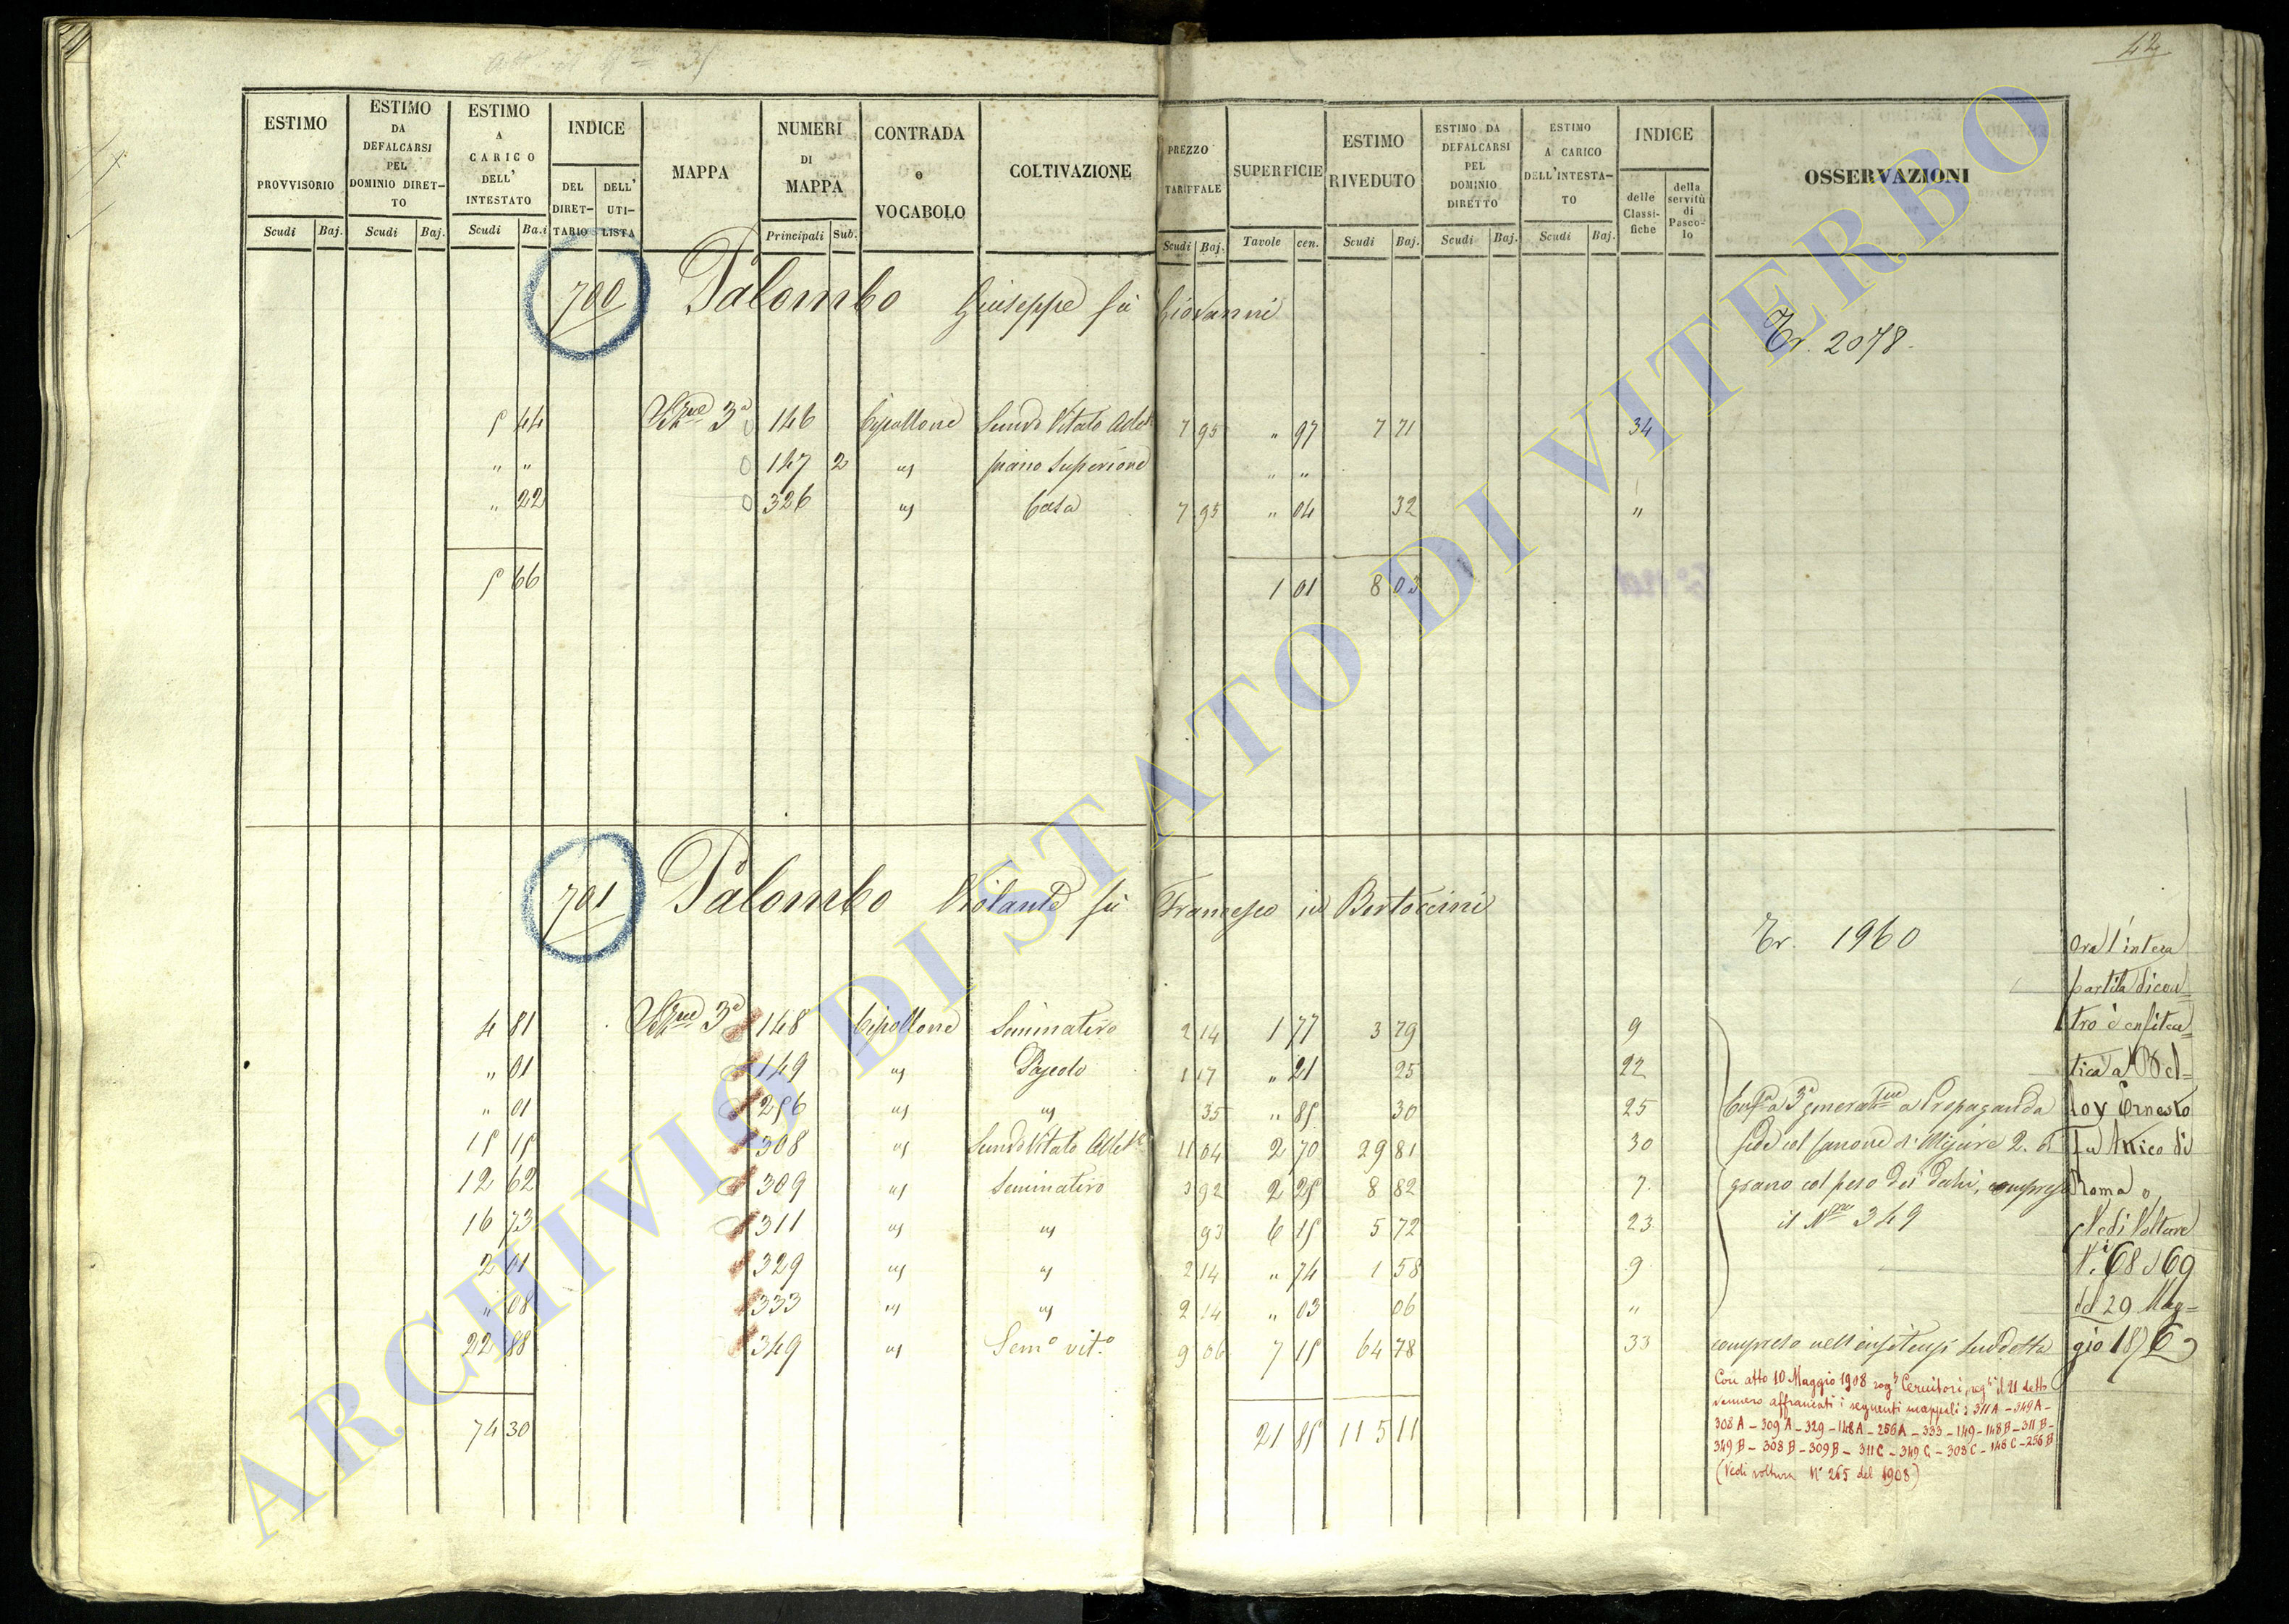 42
ESTIMO PROVVISORIO
ESTIMO DA DEFALCARSI PEL DOMINIO DIRETTO
ESTIMO A CARICO DELL' INTESTATO
INDICE
DEL DIRETTARIO
DELL' UTILISTA
MAPPA
NUMERI DI MAPPA
CONTRADA o VOCABOLO
COLTIVAZIONE
PREZZO TARIFFALE
SUPERFICIE
ESTIMO RIVEDUTO
ESTIMO DA DEFALCARSI PEL DOMINIO DIRETTO
ESTIMO A CARICO DELL'INTESTATO
INDICE
delle Classifiche
della servitù di Pascolo
OSSERVAZIONI
Scudi Baj. Scudi Baj. Scudi Ba.i Principali Sub. Scudi Baj. Tavole cen. Scudi Baj. Scudi Baj. Scudi Baj.
700 Palombo Giuseppe fu Giovanni
Tr. 2078.
5 44 3a 146 Cipollone Semvo Vitato 7 95 " 97 7 71 34
" " 147 2 " piano superiore " "
" 22 326 " Casa 7 95 " 04 32 "
5 66 1 01 8 03
701 Palombo Violante fu Francesco in Bertoccini
Tr. 1960
4 81 3a 148 Cipollone Seminativo 2 14 1 77 3 79 9
" 01 149 " Pascolo 1 17 " 21 25 22
" 01 256 " " 35 " 85 30 25
15 15 308 " Semvo Vitato 11 04 2 70 29 81 30
12 62 309 " Seminativo 3 92 2 25 8 82 7
16 73 311 " " 93 6 15 5 72 23
2 01 329 " " 2 14 " 74 1 58 9
" 08 333 " " 2 14 " 03 06 "
22 88 349 " Semo vito 9 06 7 15 64 78 33
74 30 21 85 115 11
a 3a generane a Propaganda
fide col canone di Misure 2. di
grano col peso dei dazi, compreso
il Nro 349
compreso nell'enfiteusi suddetta
Con atto 10 Maggio 1908 rogo Cernitori, rego il 21 detto
vennero affrancati i seguenti mappali: 311A - 349A -
308A - 309A - 329 - 148A - 256A - 333 - 149 - 148B - 311B -
349B - 308B - 309B - 311C - 349C - 308C - 148C - 256B
(Vedi voltura N° 265 del 1908)
Ora l'intera
partita dicon=
tro è enfiteu=
tica a Del=
loy Ernesto
fu di
Roma
Vedi Volture
Ni 68 e 69
del 29 Mag=
gio 1876
ARCHIVIO DI STATO DI VITERBO